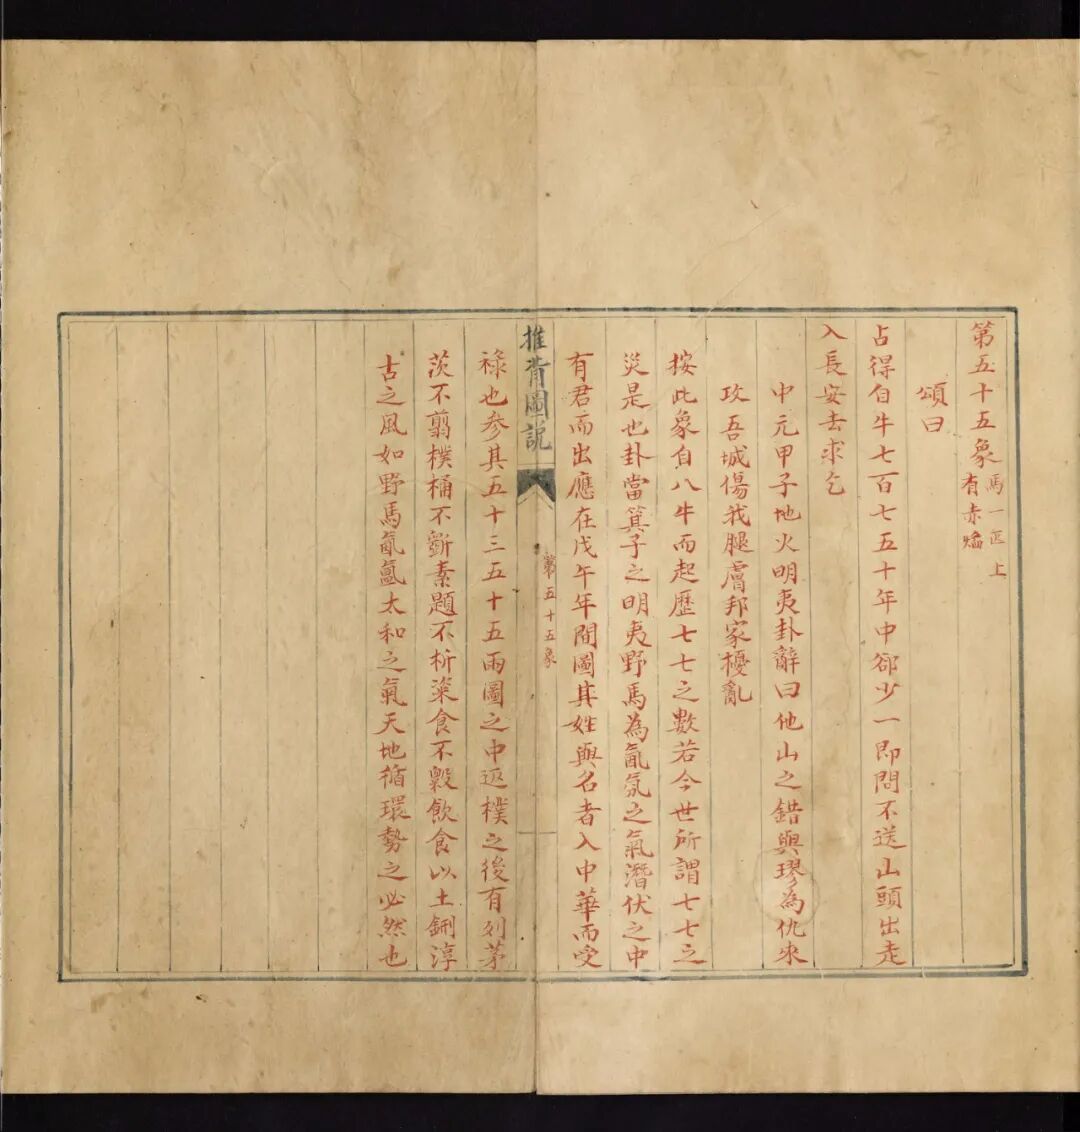 第五十五象 馬一匹上
有赤焰
頌曰
占得自牛七百七五十年中卻少一即問不送山頭出走
入長安去求乞
中元甲子地火明夷卦辭曰他山之錯與璆為仇來
攻吾城傷我腿膚邦家擾亂
按此象自八牛而起歷七七之數若今世所謂七七之
災是也卦當箕子之明夷野馬為氤氛之氣潛伏之中
有君而出應在戊午年間圖其姓與名者入中華而受
推背圖說
第五十五象
祿也參其五十三五十五兩圖之中返樸之後有列茅
茨不翦樸桷不斵素題不枅粢食不毇飲食以土鉶淳
古之風如野馬氤氳太和之氣天地循環勢之必然也